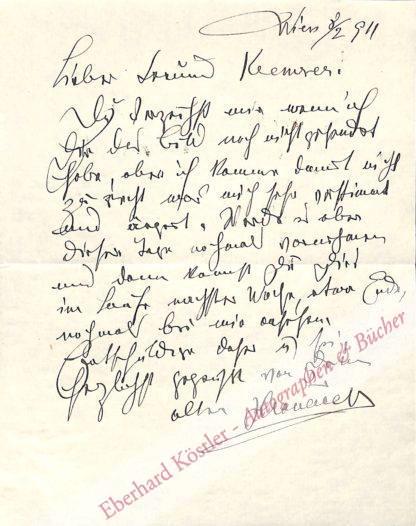 Wien 8/2 911
Lieber Freund
Du verzeihst mir wenn ich
Dir das Bild noch nicht gesendet
habe, aber ich komme damit nicht
zu recht was mich sehr verstimmt
und ärgert. Werde es aber
dieser Tage nochmal vornehmen
und dann kannst Du Dir's
im Laufe nächster Woche, etwa Ende,
nochmal bei mir ansehen.
Entschuldige daher u sei
herzlichst gegrüsst von Deinem
alten
Eberhard Köstler - Autographen & Bücher